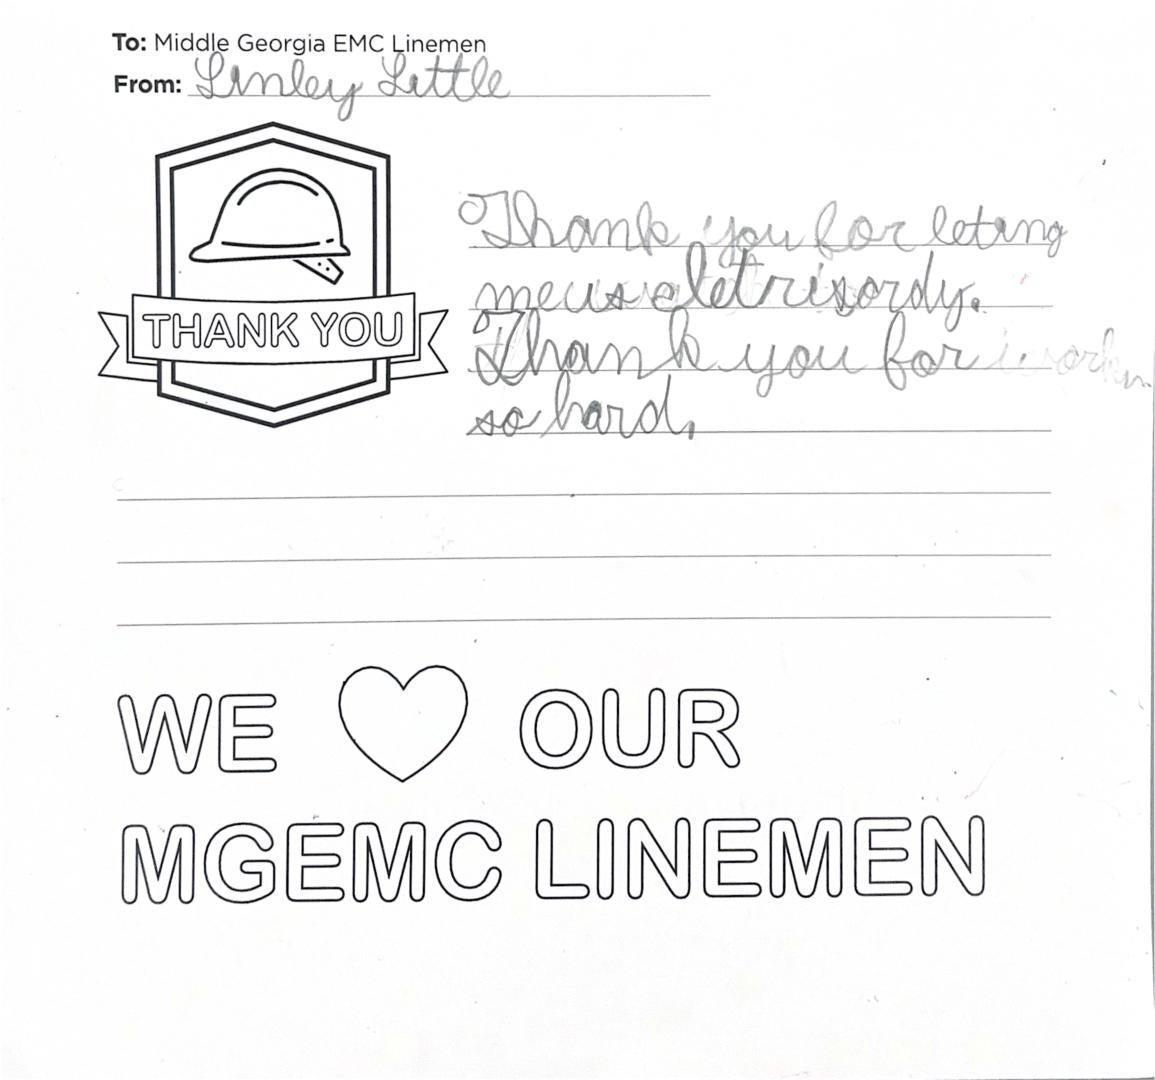 To: Middle Georgia EMC Linemen
From: Linley Little
Thank you for leting
me use eletrisordy.
Thank you for workin
so hard.
THANK YOU
WE OUR
MGEMC LINEMEN